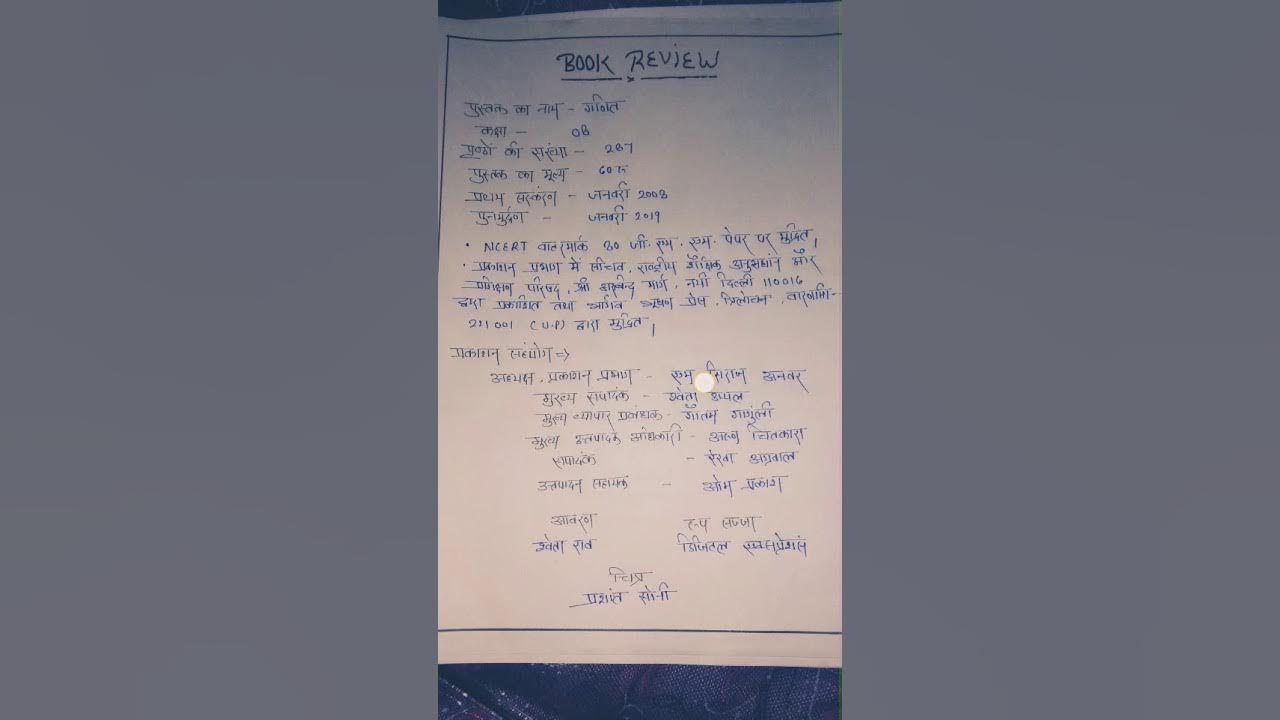 BOOK REVIEW
पुस्तक का नाम - गणित
कक्षा - 08
पृष्ठों की संख्या - 287
पुस्तक का मूल्य - 60 रु
प्रथम संस्करण - जनवरी 2008
पुनमुर्द्रण - जनवरी 2019
• NCERT वाटरमार्क 80 जी. एम. एम. पेपर पर मुद्रित।
• प्रकाशन प्रभाग में सचिव, राष्ट्रीय शैक्षिक अनुसंधान और
प्रशिक्षण परिषद, श्री अरविन्द मार्ग, नयी दिल्ली 110016
द्वारा प्रकाशित तथा भूषण प्रेस, त्रिलोचन, वाराणसि-
221001 (U.P) द्वारा मुद्रित।
प्रकाशन सहयोग =>
अध्यक्ष, प्रकाशन प्रभाग - एम सिराज अनवर
मुख्य संपादक - श्वेता उप्पल
मुख्य व्यापार प्रबंधक - गौतम गांगुली
मुख्य उत्पादक अधिकारी - अरुण चितकारा
संपादक - रेखा अग्रवाल
उत्तपादन सहायक - ओम प्रकाश
आवरण रूप सज्जा
श्वेता राव डिजिटल एक्सप्रेशंस
चित्र
प्रशांत सोनी